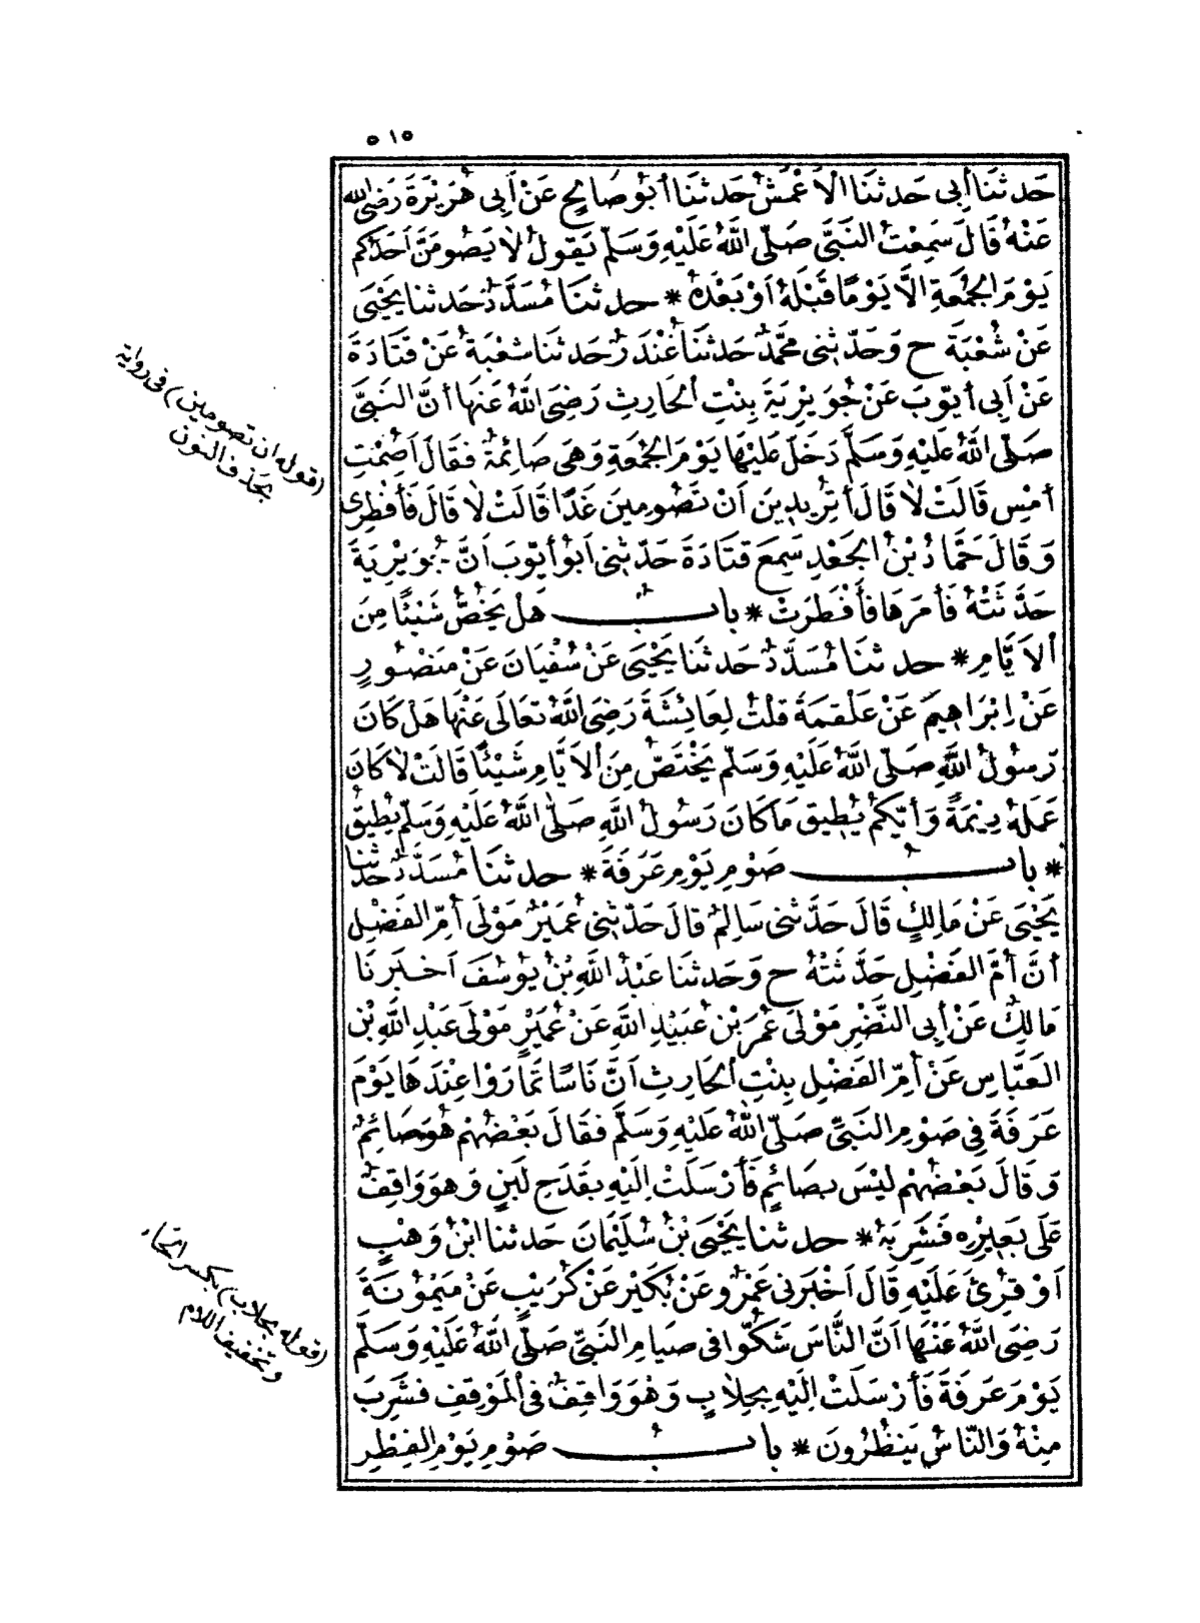 ٥١٥
حَدثنَا أَبِى حَدثنَا الْاَعْمَشُ حَدثنَا أَبُو صَالِحٍ عَنْ أَبِى هُرَيْرَةَ رَضِىَ اللّٰه
عَنْهُ قَالَ سَمِعْتُ النَّبَىَّ صَلَّى اللَّهُ عَلَيْهِ وَسَلَّمَ يَقُولُ لاَ يَصُومَنَّ اَحَدُكُم
يَوْمَ الْجُمُعَةِ الَّا يَوْمًا قَبْلَهُ اَوْ بَعْدَهُ * حدثنَا مُسَدَّدٌ حَدثنا يَحْيَى
عَنْ شُعْبَةَ ح وَحَدّثنِى مُحَمَّدٌ حَدثنَا غُنْدَرٌ حَدثنَا شعْبَةُ عَنْ قَتَادَةَ
عَنْ اَبِى أَيّوبَ عَنْ جُوَيْرِيَةَ بِنْتِ الْحَارِثِ رَضِىَ اللَّهُ عَنْهَا أَنَّ النَّبِىَّ
صَلَّى اللَّهُ عَلَيْهِ وَسَلَّمَ دَخَلَ عَلَيْهَا يَوْمَ الْجُمُعَةِ وَهْىَ صَائِمَةٌ فَقَالَ اَصُمْتِ
أَمْسِ قَالَتْ لاَ قَالَ أَتُرِيدِينَ اَنْ تَصُومِينَ غَدًا قَالَتْ لاَ قَالَ فَأَفْطِرِى
وَقَالَ حَمَّادُ بْنُ الْجَعْدِ سَمِعَ قتَادَةَ حَدّثنِى اَبُو أَيّوبَ اَنَّ جُوَيْرِيَةَ
حَدَّثَتْهُ فَأَمَرَهَا فَأَفْطَرَتْ * بابٌ هَلْ يَخُصُّ شَيْئًا مِنَ
الاَيَّامِ * حدثنَا مُسَدَّدٌ حَدثنَا يَحْيَى عَنْ سُفْيَانَ عَنْ مَنْصُورٍ
عَنْ اِبْرَاهِيمَ عَنْ عَلْقمَةَ قلْتُ لِعَائِشَةَ رَضِىَ اللَّهُ تعَالَى عَنْهَا هَلْ كَانَ
رَسُولُ اللَّهِ صَلَّى اللَّهُ عَلَيْهِ وَسَلَّمَ يَخْتَصُّ مِنَ الاَيَّامِ شَيْئًا قَالَتْ لاَ كَانَ
عَمَلهُ دِيْمَةً وَأَيّكُمْ يُطِيق مَا كَانَ رَسُولُ اللَّهِ صَلَّى اللَّهُ عَلَيْهِ وَسَلَّمَ يُطِيقُ
* بابٌ صَوْمِ يَوْمِ عَرَفَةَ * حدثنَا مُسَدَّدٌ حَدثنَا
يَحْيَى عَنْ مَالِكٍ قَالَ حَدَّثنى سَالِمٌ قالَ حَدّثنِى عُمَيْرٌ مَوْلَى أُمِّ الفَضْلِ
أَنَّ أُمَّ الفَضْلِ حَدَّثَتْهُ ح وَحَدثنَا عَبْدُ اللَّهِ بْنُ يُوسُفَ اَخْبَرنَا
مَالِكٌ عَنْ أَبِى النَّضْرِ مَوْلَى عُمَرَ بْن عُبَيْدِ اللَّهِ عَنْ عُمَيْرٍ مَوْلَى عَبْدِ اللَّهِ بْن
العَبَّاسِ عَنْ أُمِّ الفَضْلِ بِنْتِ الْحَارِثِ اَنَّ نَاسًا تَمَارَوْا عِنْدَهَا يَوْمَ
عَرَفَةَ فِى صَوْمِ النَّبِىِّ صَلَّى اللَّهُ عَلَيْهِ وَسَلَّمَ فَقَالَ بَعْضُهُمْ هُوَ صَائِمٌ
وَقَالَ بَعْضُهُمْ لَيْسَ بصَائِمٍ فَأَرْسَلَتْ اِلَيْهِ بقَدَحِ لَبَنٍ وَهوَ وَاقِفٌ
عَلَى بَعِيْرِهِ فَشَرِبَهُ * حدثنا يَحْيَى بْنُ سُلَيْمَانَ حَدثنا ابْنُ وَهْبٍ
اَوْ قرِئَ عَلَيْهِ قَالَ اَخْبَرنى عَمْرٌو عَنْ بُكَيْرٍ عَنْ كُرَيْبٍ عَنْ مَيْمُونَةَ
رَضِىَ اللَّهُ عَنْهَا اَنَّ النَّاسَ شَكُّوا فى صيَامِ النَّبِىِّ صَلَّى اللَّهُ عَلَيْهِ وَسَلَّمَ
يَوْمَ عَرَفَةَ فَأَرْسَلَتْ اِلَيْهِ بِحِلاَبٍ وَهْوَ وَاقِفٌ فى الْمَوْقِفِ فشَرِبَ
مِنْهُ وَالنّاسُ يَنْظُرُونَ * بابُ صَوْمِ يَوْمِ الفِطْرِ
(قوله ان تصومين) فى رواية
بحذف النون
(قوله بحلاب) بكسر الحاء
وتخفيف اللام